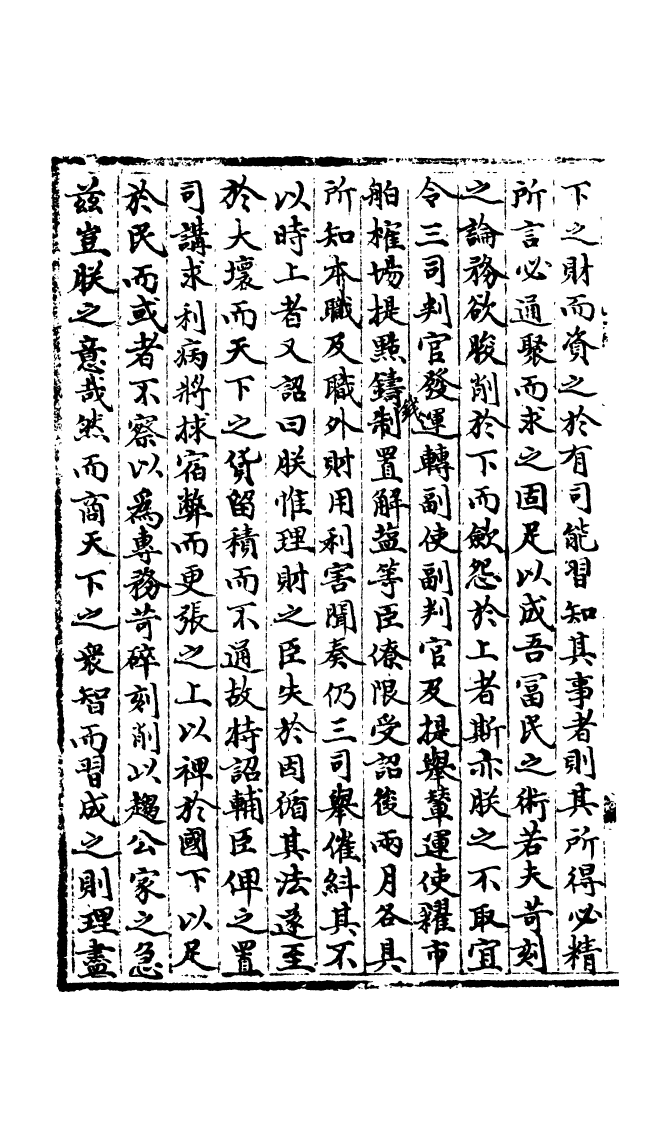 下之財而資之於有司能習知其事者則其所得必精
所言必通聚而求之固足以成吾冨民之術若夫苛刻
之論務欲朘削於下而斂怨於上者斯亦朕之不取宜
令三司判官發運轉副使副判官及提舉輦運使糴市
舶榷場提點鑄錢制置解盐等臣僚限受詔後兩月各具
所知本職及職外財用利害聞奏仍三司舉催糾其不
以時上者又詔曰朕惟理財之臣失於因循其法遂至
於大壞而天下之貨留積而不通故特詔輔臣俾之置
司講求利病將捄宿弊而更張之上以裨於國下以足
於民而或者不察以為專務苛碎刻削以趨公家之急
茲豈朕之意哉然而商天下之衆智而習成之則理盡